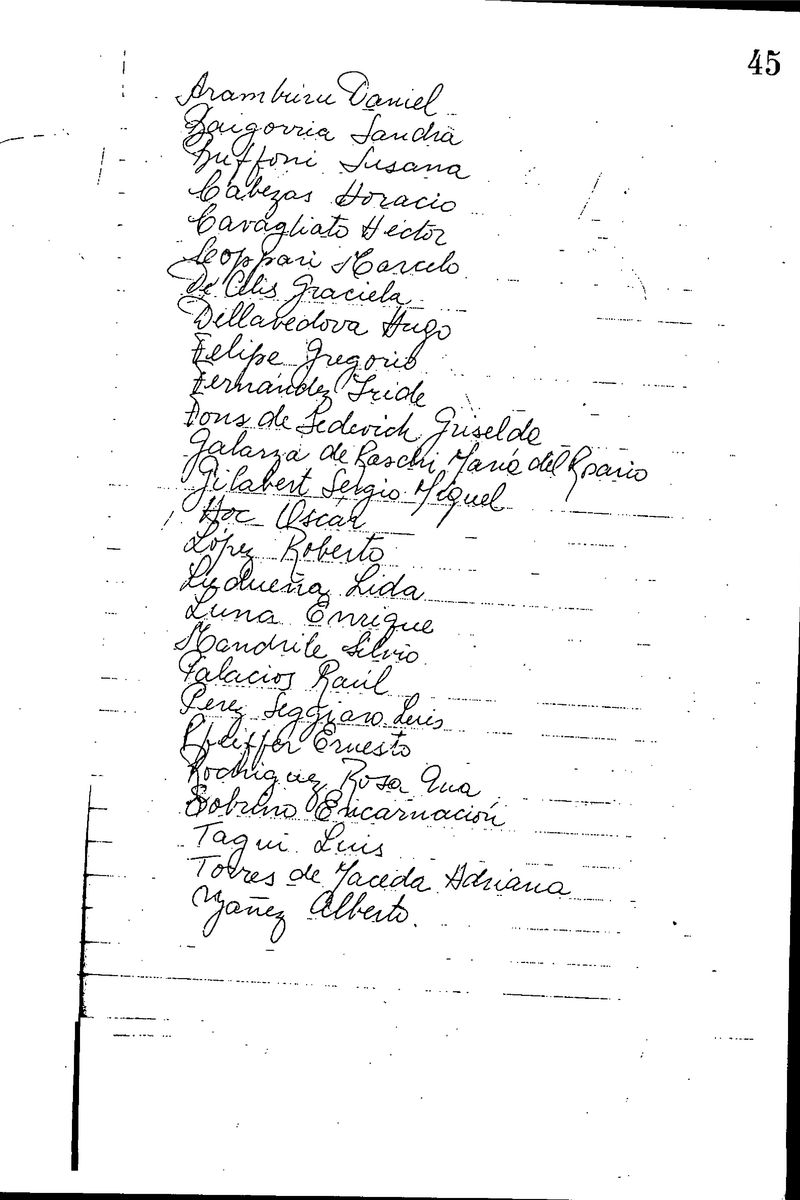 45
Aramburu Daniel
Baigorria Sandra
Buffoni Susana
Cabezas Horacio
Cavagliato Héctor
Coppari Marcelo
De Celis Graciela
Dillavedova Hugo
Felipe Gregorio
Fernández Iride
Fons de Griselda
Galarza de Raschi María del Rosario
Gilabert Sergio Miguel
Hoc Oscar
López Roberto
Ludueña Lida
Luna Enrique
Mandrile Silvio
Palacios Raúl
Perez Seggiaro Luis
Pfeiffer Ernesto
Rodriguez Rosa Ana
Sobrino Encarnación
Taqui Luis
Torres de Maceda Adriana
Yáñez Alberto.